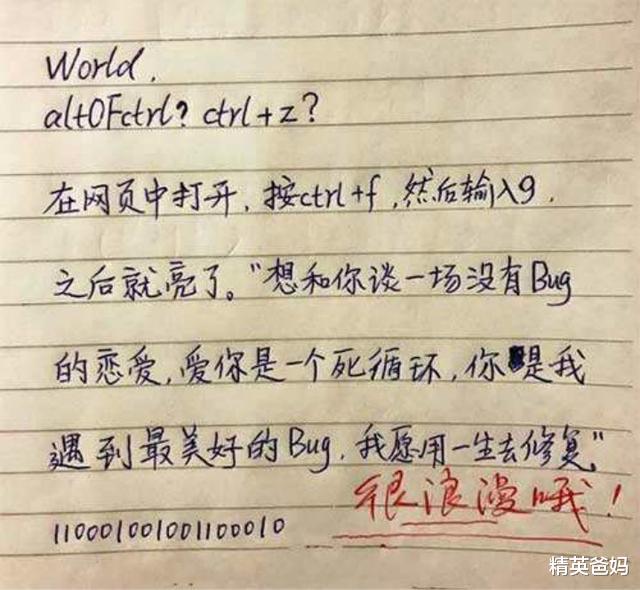 World.
alt0Fctrl? ctrl+z?
在网页中打开,按ctrl+f,然后输入9.
之后就亮了。"想和你谈一场没有Bug
的恋爱,爱你是一个死循环,你是我
遇到最美好的Bug.我愿用一生去修复。"
很浪漫哦!
110001001001100010
精英爸妈